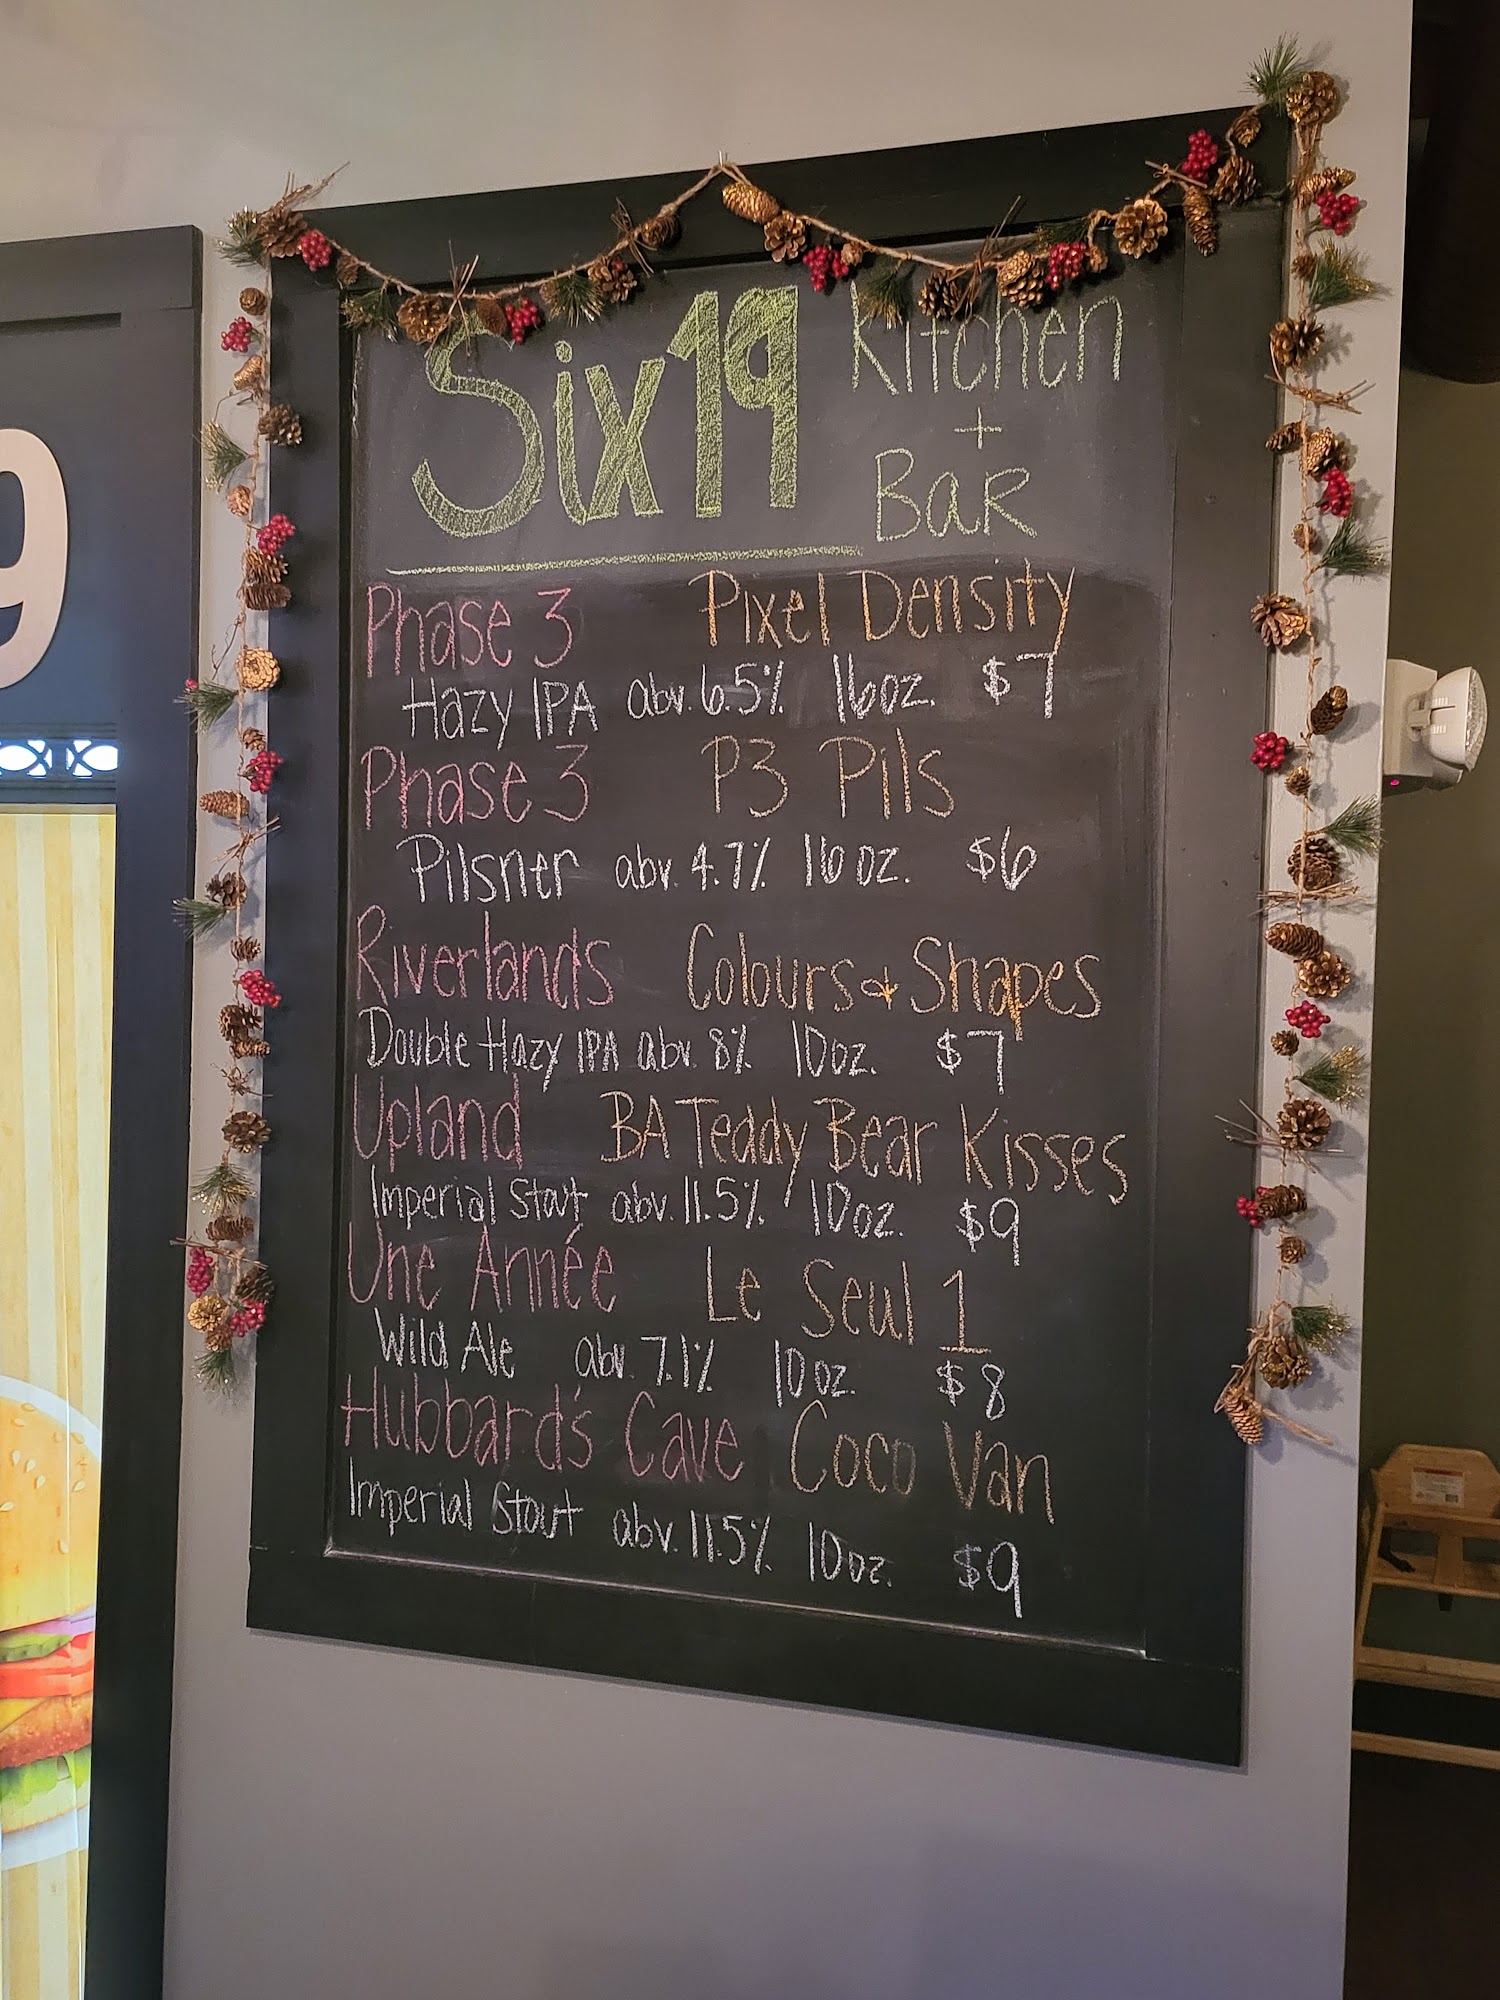 Six19 Kitchen
+
Bar
9
Phase 3 Pixel Density
Hazy IPA abv. 6.5% 16oz. $7
Phase 3 P3 Pils
Pilsner abv. 4.7% 16oz. $6
Riverlands Colours & Shapes
Double Hazy IPA abv. 8% 10oz. $7
Upland BA Teddy Bear Kisses
Imperial Stout abv. 11.5% 10oz. $9
Une Année Le Seul 1
Wild Ale abv. 7.1% 10oz. $8
Hubbard's Cave Coco Van
Imperial Stout abv. 11.5% 10oz. $9